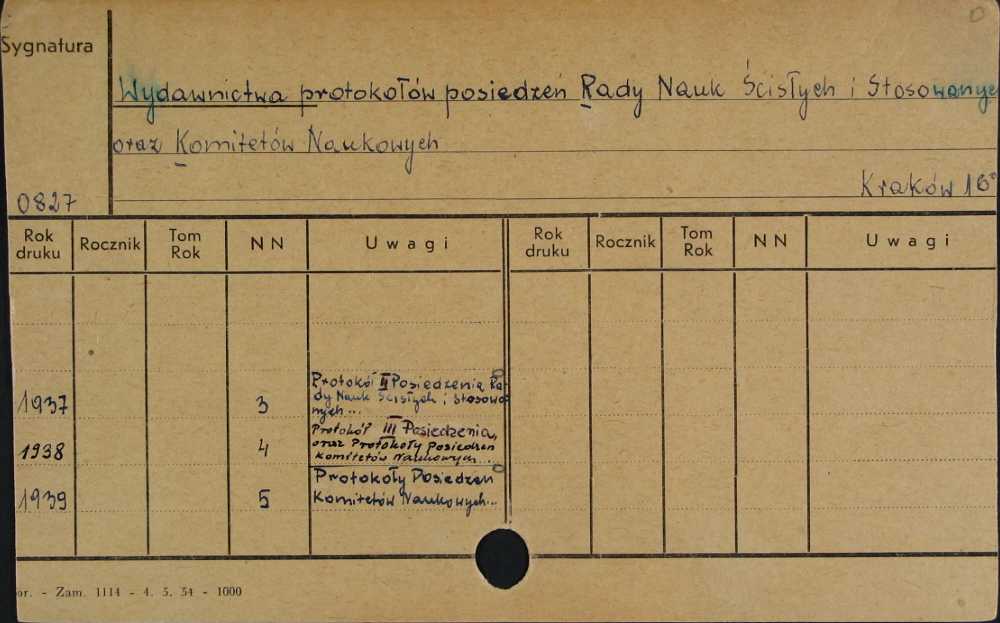 Sygnatura
Wydawnictwa protokołów posiedzeń Rady Nauk Ścisłych i Stosowanyc
oraz Komitetów Naukowych
0827
Kraków 16°
Rok druku Rocznik Tom Rok NN Uwagi Rok druku Rocznik Tom Rok NN Uwagi
1937 3 Protokół II Posiedzenia Ra-
dy Nauk Ścisłych i Stosowa
nych...
1938 4 Protokół III Posiedzenia,
oraz Protokoły posiedzeń
Komitetów Naukowych...
1939 5 Protokoły Posiedzeń
Komitetów Naukowych...
or. - Zam. 1114 - 4. 5. 54 - 1000